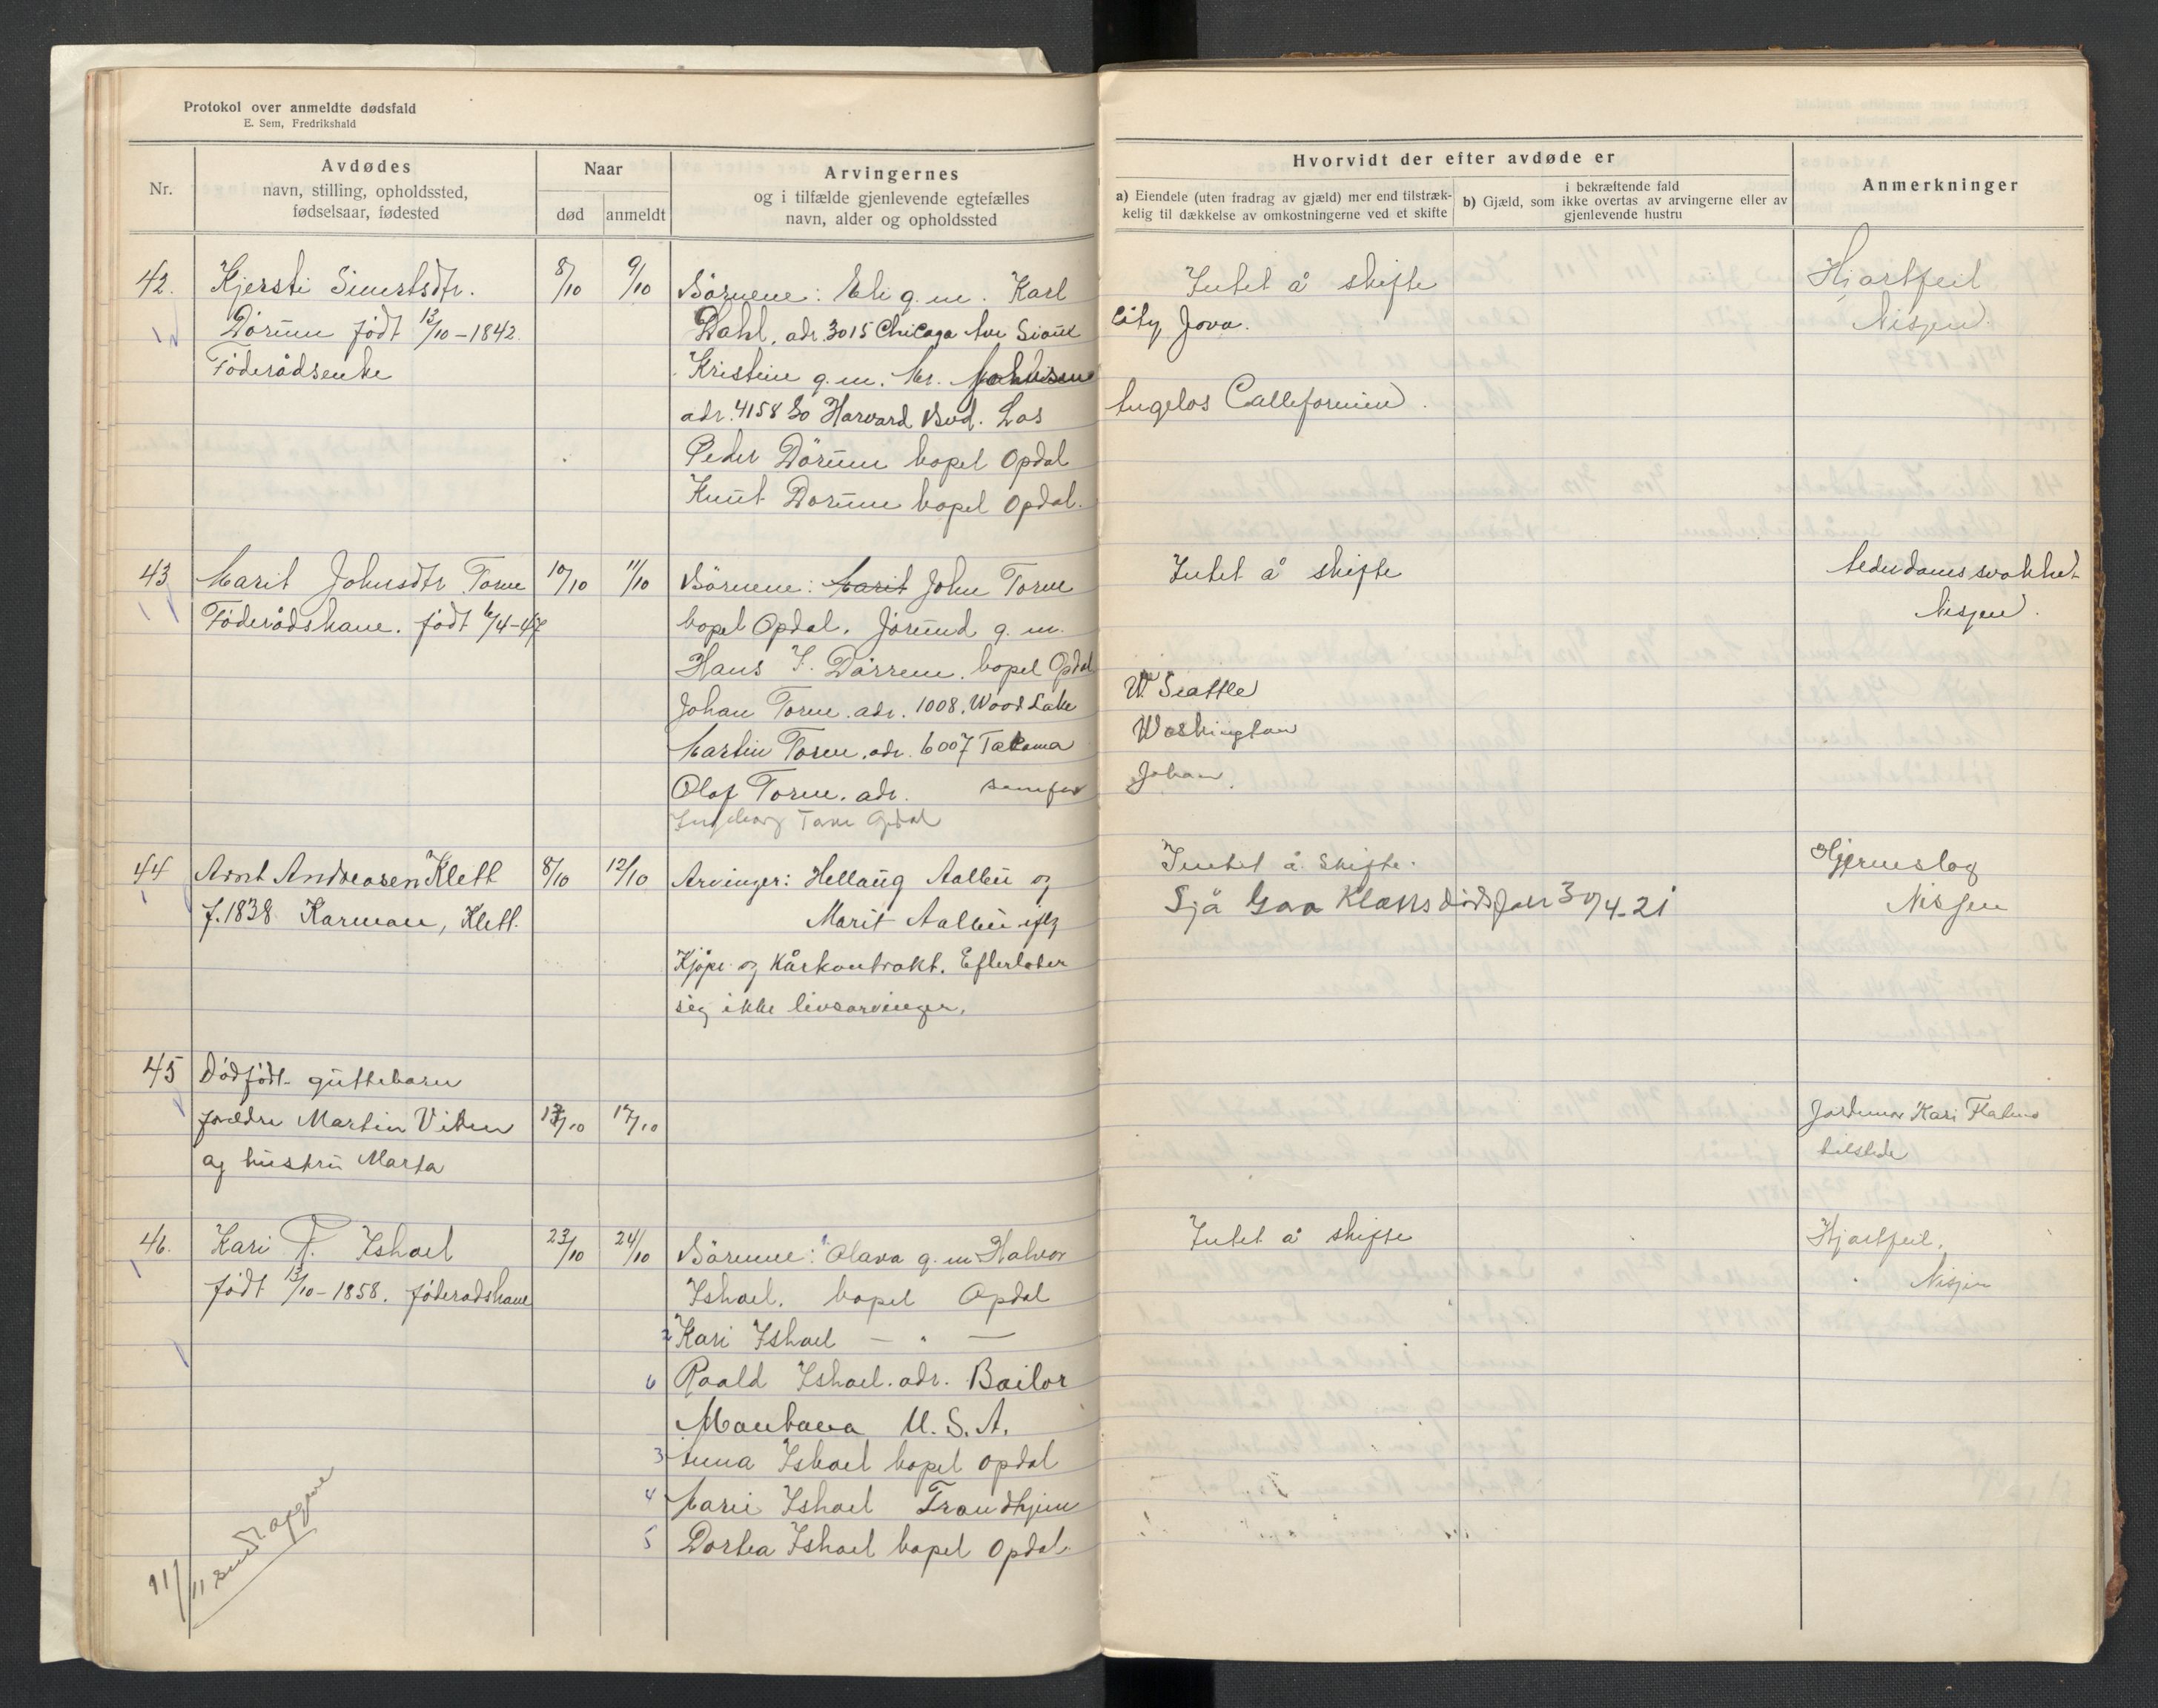 Protokol over anmeldte dødsfald
E. Sem, Fredrikshald
Nr.
Avdødes
navn, stilling, opholdssted,
fødselsaar, fødested
Naar
død
anmeldt
Arvingernes
og i tilfælde gjenlevende egtefælles
navn, alder og opholdssted
Hvorvidt der efter avdøde er
a) Eiendele (uten fradrag av gjæld) mer end tilstræk-
kelig til dækkelse av omkostningerne ved et skifte
i bekræftende fald
b) Gjæld, som ikke overtas av arvingerne eller av
gjenlevende hustru
Anmerkninger
42.
Kjersti Sivertsdtr.
Dörum født 13/10-1842.
Föderådsenke
8/10
9/10
Börnene: Eli g.m. Karl
Dahl, adr. 3015 Chicago Ave Sioux
Kristine g.m. Mr.
adr. 4158 So Harvard Bvd. Los
Peder Dörum bopel Opdal
Knut Dorum bopel Opdal.
Intet å skifte
City, Jova.
Angelos Calleformien.
Hjartfeil
Nisjen.
43
Marit Johnsdtr Torve
Föderådskone. født 6/4-47
10/10
11/10
Börnene: Marit John Torve
bopel Opdal. Jorund g. m.
Hans I. Dörrem. bopel Opdal
Johan Torve. adr. 1008. Wood Lake
Martin Torve. adr. 6007 Takoma
Olaf Torve. adr. samfor
Ingeborg Torve Opdal
Intet å skifte
W. Seattle
Washington
Johan.
Alderdomssvakhet
Nisjen.
44
Arnt Andreasen Klett
f. 1838 Karmann, Klett.
8/10
12/10
Arvinger: Hellaug Aalbu og
Marit Aalbu eftg
Kjöpe- og Kårkontrakt. Efterlater
sig ikke livsarvinger.
Intet å skifte.
Sjå Gro Kletts dødsfall 30/4-21
Hjerneslag
Nisjen
45
Dødfödt guttebarn
forældre Martin Viken
og hustru Marta
17/10
17/10
Jordmor Kari Flatmo
tilstede
46.
Kari T. Ishoel
født 13/10-1858. föderadskone
23/10
24/10
Börnene: 1 Olava g.m. Halvor
Ishoel. bopel Opdal
2 Kari Ishoel — " —
6 Roald Ishoel. adr. Bailor
Montana U.S.A.
3 Anna Ishoel bopel Opdal
4 Marie Ishoel Trondhjem
5 Dortea Ishoel bopel Opdal.
Intet å skifte
Hjartfeil.
Nisjen
11/11 sendt opgave